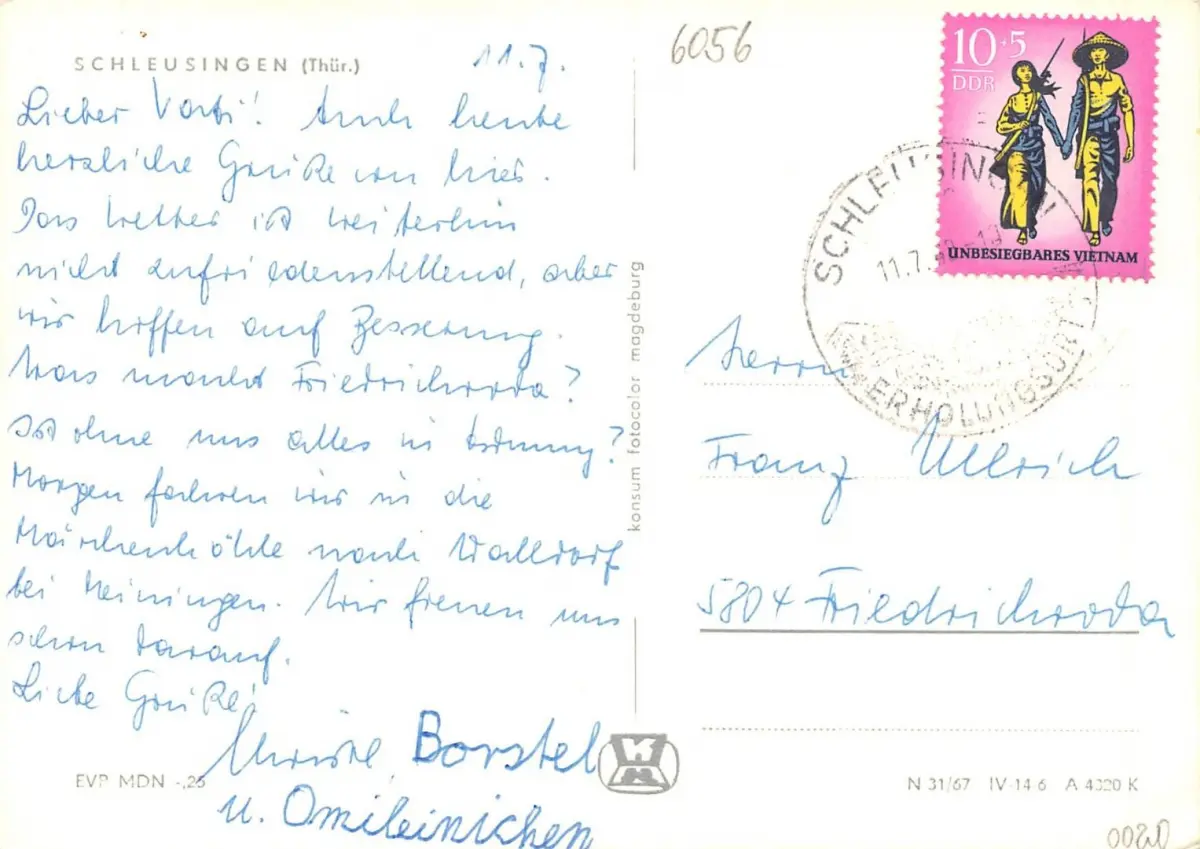 SCHLEUSINGEN (Thür.)
11.7.
6056
Lieber Vati! Auch heute
herzliche Grüße von hier.
Das Wetter ist weiterhin
nicht zufriedenstellend, aber
wir hoffen auf Besserung.
Was macht Friedrichroda?
Ist ohne uns alles in Ordnung?
Morgen fahren wir in die
Märchenhöhle nach Walldorf
bei Meiningen. Wir freuen uns
schon darauf.
Liebe Grüße!
Christel, Borstel
u. Omileinichen
EVP MDN -,25
konsum fotocolor magdeburg
10+5
DDR
UNBESIEGBARES VIETNAM
SCHLEUSINGEN
11.7.
ERHOLUNGSORT
Herrn
Franz Ullrich
5804 Friedrichroda
N 31/67 IV-14-6 A 4320 K
0020